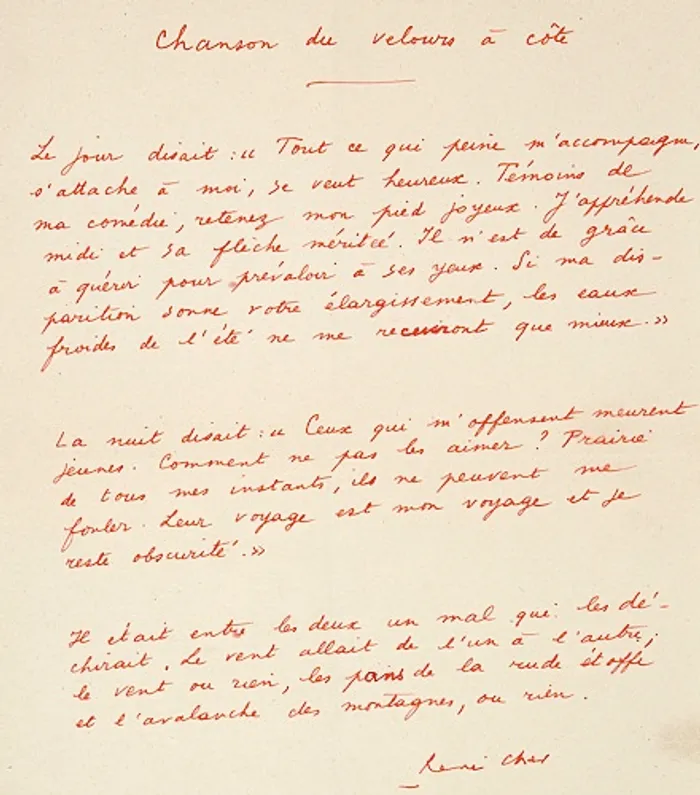 Chanson du velours à côte
Le jour disait : « Tout ce qui peine m'accompagne,
s'attache à moi, se veut heureux. Témoins de
ma comédie, retenez mon pied joyeux. J'appréhende
midi et sa flèche méritée. Il n'est de grâce
à quérir pour prévaloir à ses yeux. Si ma dis-
parition sonne votre élargissement, les eaux
froides de l'été ne me recevront que mieux. »
La nuit disait : « Ceux qui m'offensent meurent
jeunes. Comment ne pas les aimer ? Prairie
de tous mes instants, ils ne peuvent me
fouler. Leur voyage est mon voyage et je
reste obscurité. »
Il était entre les deux un mal qui les dé-
chirait. Le vent allait de l'un à l'autre ;
le vent ou rien, les pans de la rude étoffe
et l'avalanche des montagnes, ou rien.
René Char